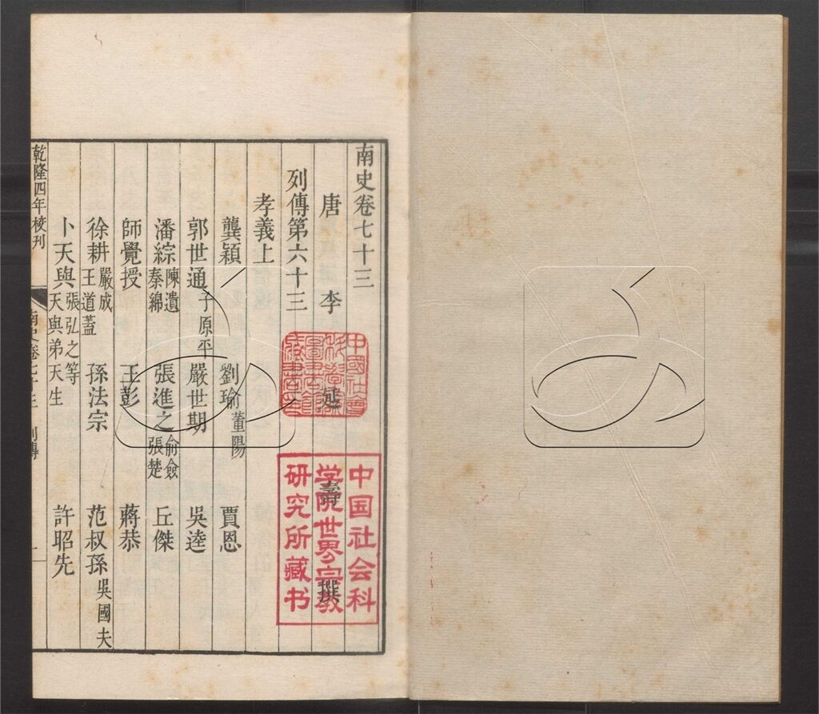 南史卷七十三
唐 李 延 壽 撰
列傳第六十三
孝義上
龔穎 劉瑜 董陽 賈恩
郭世通 子原平 嚴世期 吳逵
潘綜 陳遺 秦綿 張進之 俞僉 張楚 丘傑
師覺授 王彭 蔣恭
徐耕 嚴成 王道蓋 孫法宗 范叔孫 吳國夫
卜天與 張弘之等 天與弟天生 許昭先
乾隆四年校刊
南史卷七十三 列傳 一
中國社會
科學院
圖書館
藏書
中国社会科
学院世界宗教
研究所藏书